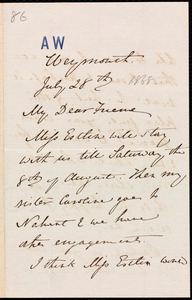 86
A W
Weymouth.
July 28th 1868
My Dear Friend
Miss Estlin will stay
with us till Saturday the
8th of August. Then my
sister Caroline goes to
Nahant & we have
other engagements.
I think Miss Estlin